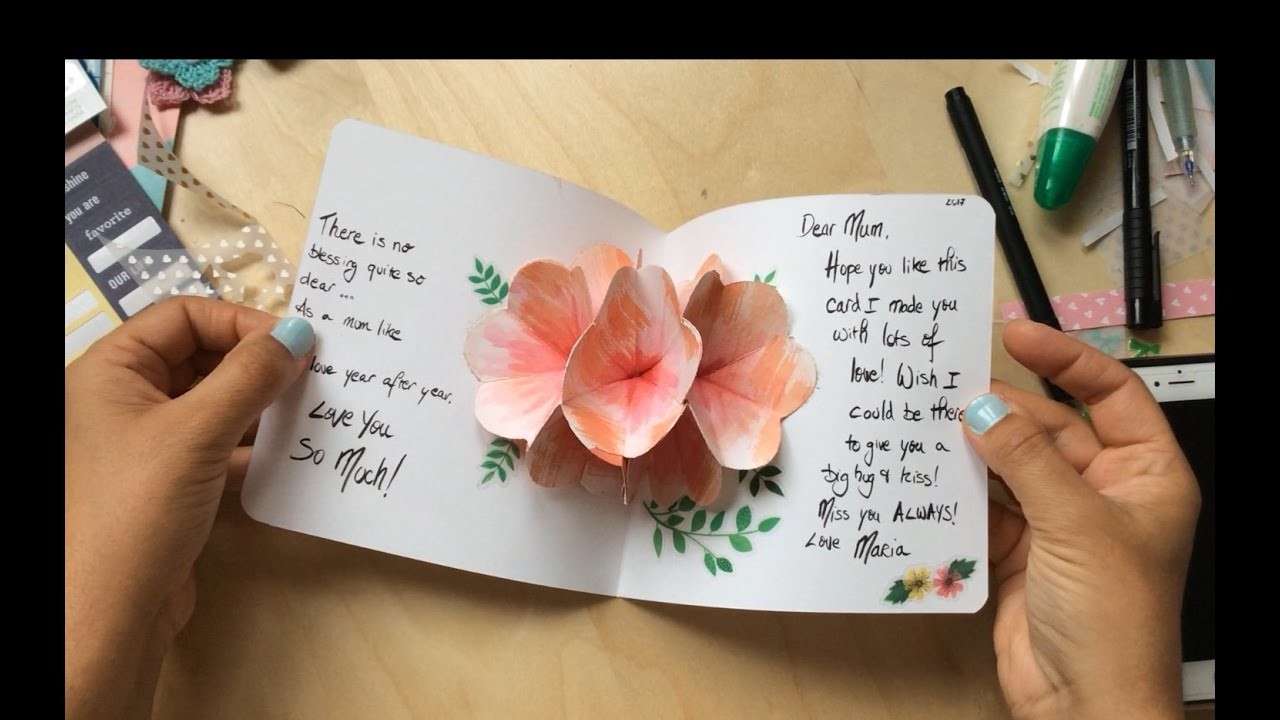 There is no
blessing quite so
dear ...
As a mum like
love year after year.
Love You
So Much!
2017
Dear Mum,
Hope you like this
card I made you
with lots of
love! Wish I
could be there
to give you a
big hug & kiss!
Miss you ALWAYS!
Love Maria
shine
you are
favorite
OUR